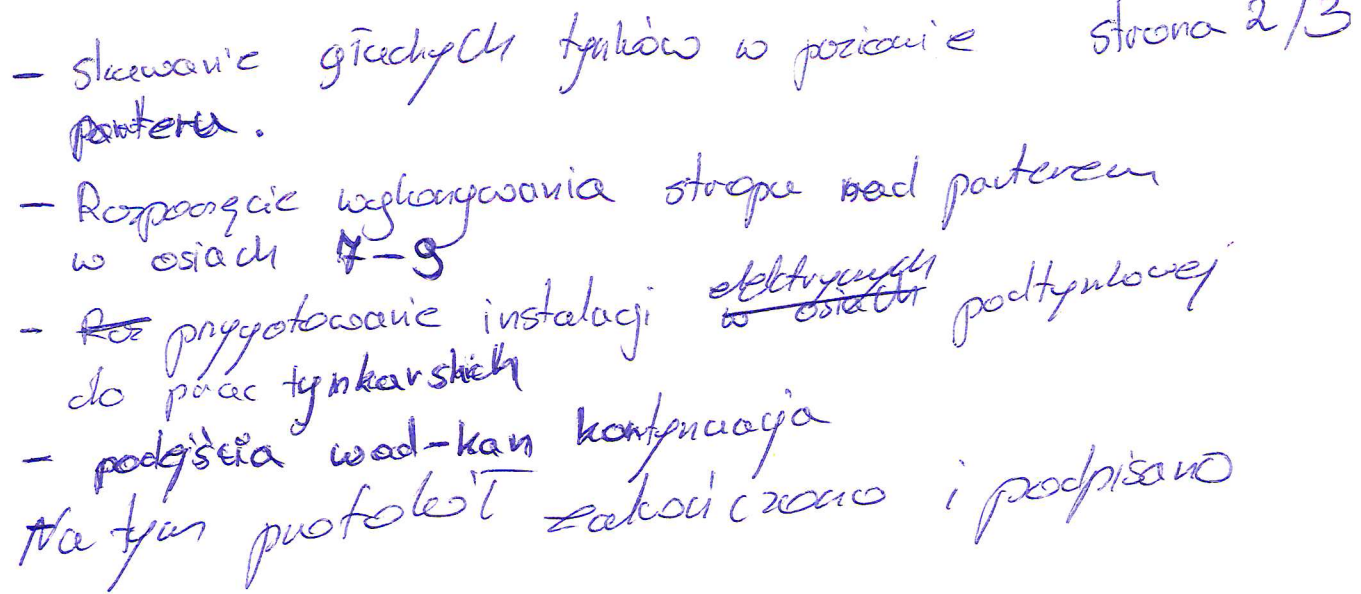 - skuwanie głuchych tynków w poziomie strona 2/3
parteru.
- Rozpoczęcie wykonywania stropu nad parterem
w osiach 7-9
elektrycznych
- Roz przygotowanie instalacji w osiach podtynkowej
do prac tynkarskich
- podejścia wod-kan kontynuacja
Na tym protokół zakończono i podpisano